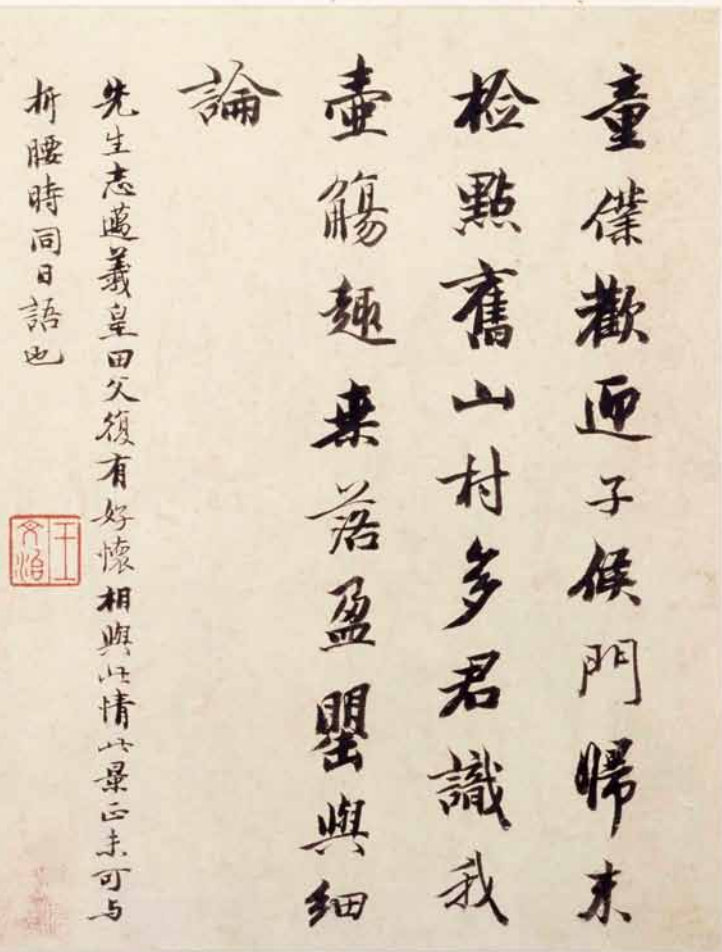 童僕歡迎子候門歸来
检點舊山村多君識我
壷觴趣桒落盈罌與細
論
先生志邁羲皇田父復有好懷相與此情此景正未可与
折腰時同日語也
王文治